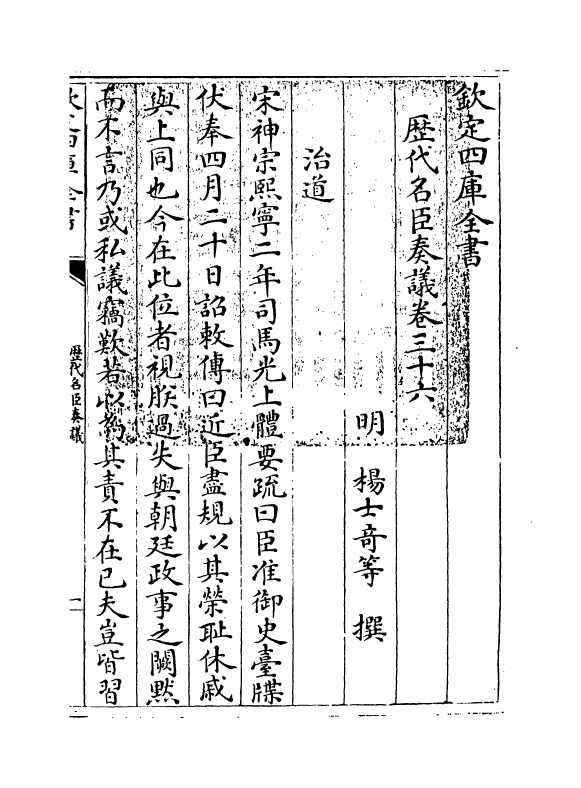 欽定四庫全書
歴代名臣奏議卷三十六
明 楊士竒等 撰
治道
宋神宗熙寧二年司馬光上體要疏曰臣准御史臺牒
伏奉四月二十日詔敕傳曰近臣盡規以其榮恥休戚
與上同也今在此位者視朕過失與朝廷政事之闕黙
而不言乃或私議竊歎若以為其責不在已夫豈皆習
歴代名臣奏議
一